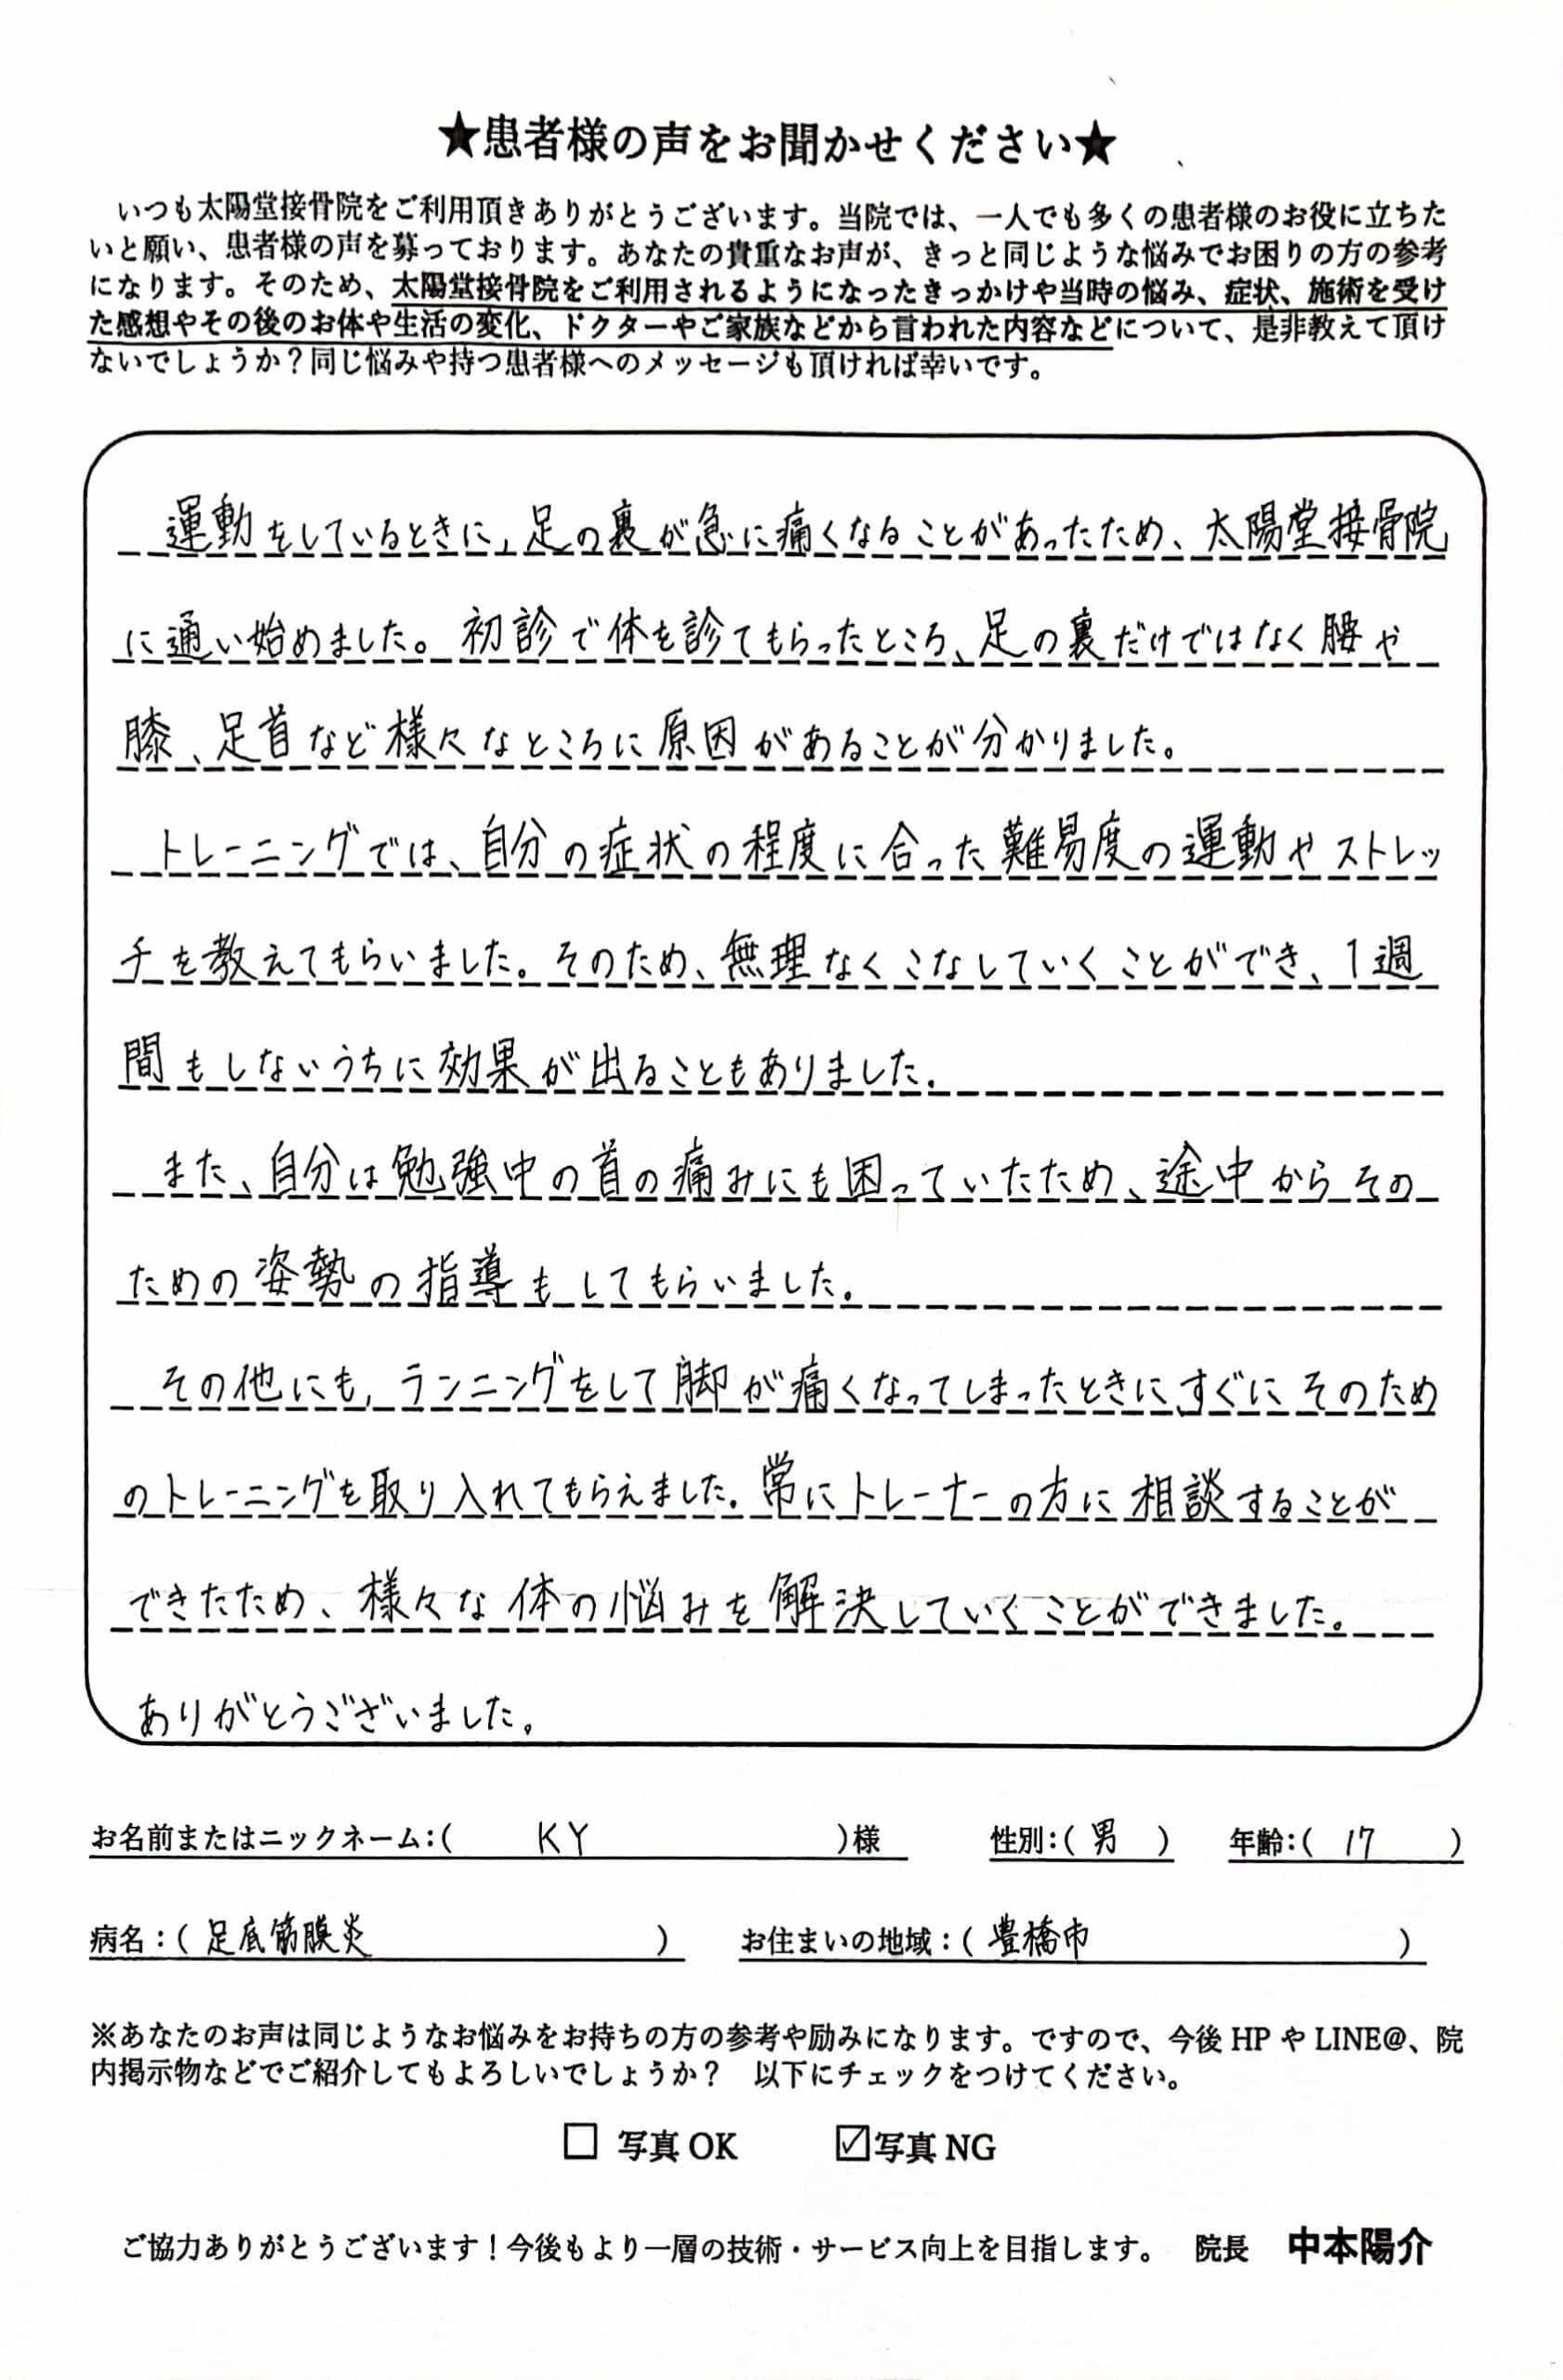 ★患者様の声をお聞かせください★
いつも太陽堂接骨院をご利用頂きありがとうございます。当院では、一人でも多くの患者様のお役に立ちた
いと願い、患者様の声を募っております。あなたの貴重なお声が、きっと同じような悩みでお困りの方の参考
になります。そのため、太陽堂接骨院をご利用されるようになったきっかけや当時の悩み、症状、施術を受け
た感想やその後のお体や生活の変化、ドクターやご家族などから言われた内容などについて、是非教えて頂け
ないでしょうか？同じ悩みや持つ患者様へのメッセージも頂ければ幸いです。
運動をしているときに、足の裏が急に痛くなることがあったため、太陽堂接骨院
に通い始めました。初診で体を診てもらったところ、足の裏だけではなく腰や
膝、足首など様々なところに原因があることが分かりました。
トレーニングでは、自分の症状の程度に合った難易度の運動やストレッ
チを教えてもらいました。そのため、無理なくこなしていくことができ、1週
間もしないうちに効果が出ることもありました。
また、自分は勉強中の首の痛みにも困っていたため、途中からその
ための姿勢の指導もしてもらいました。
その他にも、ランニングをして脚が痛くなってしまったときに、すぐにそのため
のトレーニングを取り入れてもらえました。常にトレーナーの方に相談することが
できたため、様々な体の悩みを解決していくことができました。
ありがとうございました。
お名前またはニックネーム：（ KY ）様 性別：（ 男 ） 年齢：（ 17 ）
病名：（ 足底筋膜炎 ） お住まいの地域：（ 豊橋市 ）
※あなたのお声は同じようなお悩みをお持ちの方の参考や励みになります。ですので、今後 HP や LINE@、院
内掲示物などでご紹介してもよろしいでしょうか？ 以下にチェックをつけてください。
□ 写真 OK ☑写真 NG
ご協力ありがとうございます！今後もより一層の技術・サービス向上を目指します。 院長 中本陽介